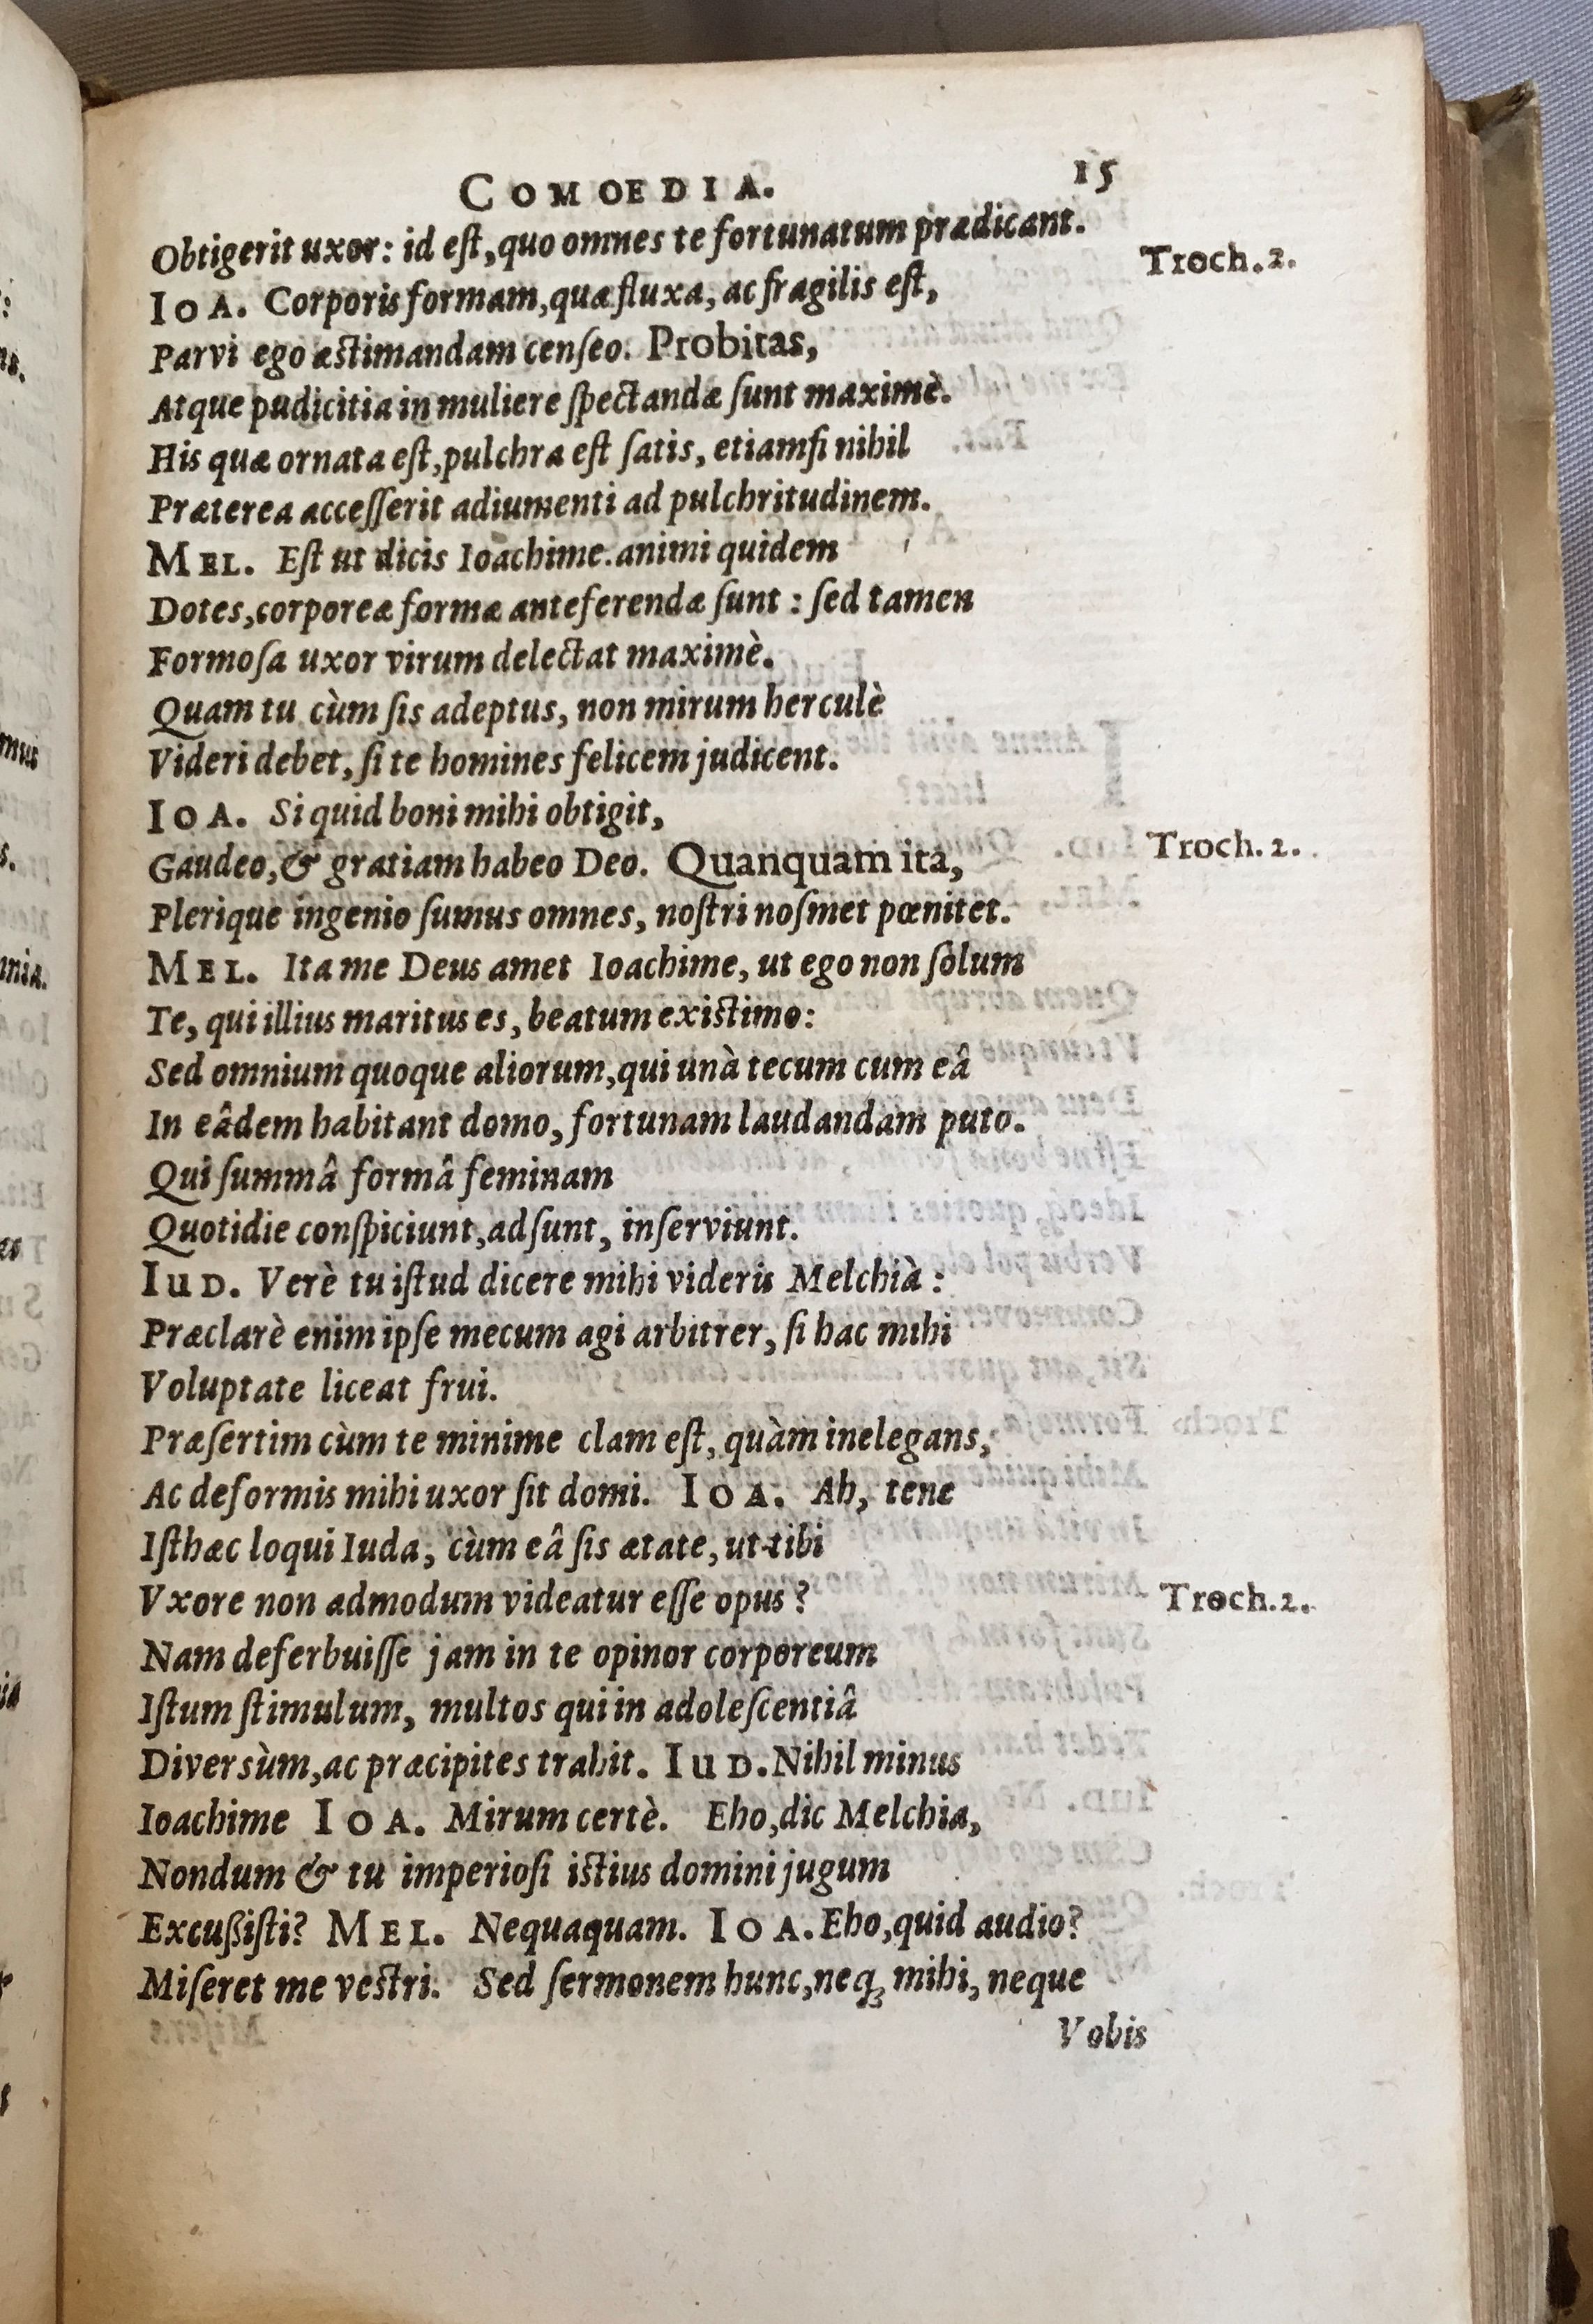 COMOEDIA. 15
Obtigerit uxor: id eſt, quo omnes te fortunatum prædicant.
IOA. Corporis formam, quæ fluxa, ac fragilis eſt, Troch. 2.
Parvi ego æſtimandam cenſeo. Probitas,
Atque pudicitia in muliere ſpectandæ ſunt maximè.
His quæ ornata eſt, pulchra eſt ſatis, etiamſi nihil
Præterea acceſſerit adiumenti ad pulchritudinem.
MEL. Eſt ut dicis Ioachime. animi quidem
Dotes, corporeæ formæ anteferendæ ſunt: ſed tamen
Formoſa uxor virum delectat maximè.
Quam tu cùm ſis adeptus, non mirum herculè
Videri debet, ſi te homines felicem judicent.
IOA. Si quid boni mihi obtigit,
Gaudeo, & gratiam habeo Deo. Quanquam ita, Troch. 2.
Plerique ingenio ſumus omnes, noſtri noſmet pœnitet.
MEL. Ita me Deus amet Ioachime, ut ego non ſolum
Te, qui illius maritus es, beatum exiſtimo:
Sed omnium quoque aliorum, qui unà tecum cum eâ
In eâdem habitant domo, fortunam laudandam puto.
Qui ſummâ formâ feminam
Quotidie conſpiciunt, adſunt, inſerviunt.
IUD. Verè tu iſtud dicere mihi videris Melchià:
Præclarè enim ipſe mecum agi arbitrer, ſi hac mihi
Voluptate liceat frui.
Præſertim cùm te minime clam eſt, quàm inelegans,
Ac deformis mihi uxor ſit domi. IOA. Ah, tene
Iſthæc loqui Iuda, cùm eâ ſis ætate, ut tibi
Vxore non admodum videatur eſſe opus? Troch. 2.
Nam deferbuiſſe jam in te opinor corporeum
Iſtum ſtimulum, multos qui in adoleſcentiâ
Diversùm, ac præcipites trahit. IUD. Nihil minus
Ioachime IOA. Mirum certè. Eho, dic Melchia,
Nondum & tu imperioſi iſtius domini jugum
Excußiſti? MEL. Nequaquam. IOA. Eho, quid audio?
Miſeret me veſtri. Sed ſermonem hunc, neq; mihi, neque
Vobis